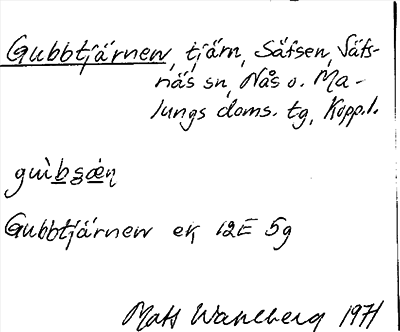 Gubbtjärnen, tjärn, Säfsen, Säfs-
näs sn, Nås o. Ma-
lungs doms. tg, Kopp.l.
Gubbtjärnen ek 12E 5g
Mats Wahlberg 1971